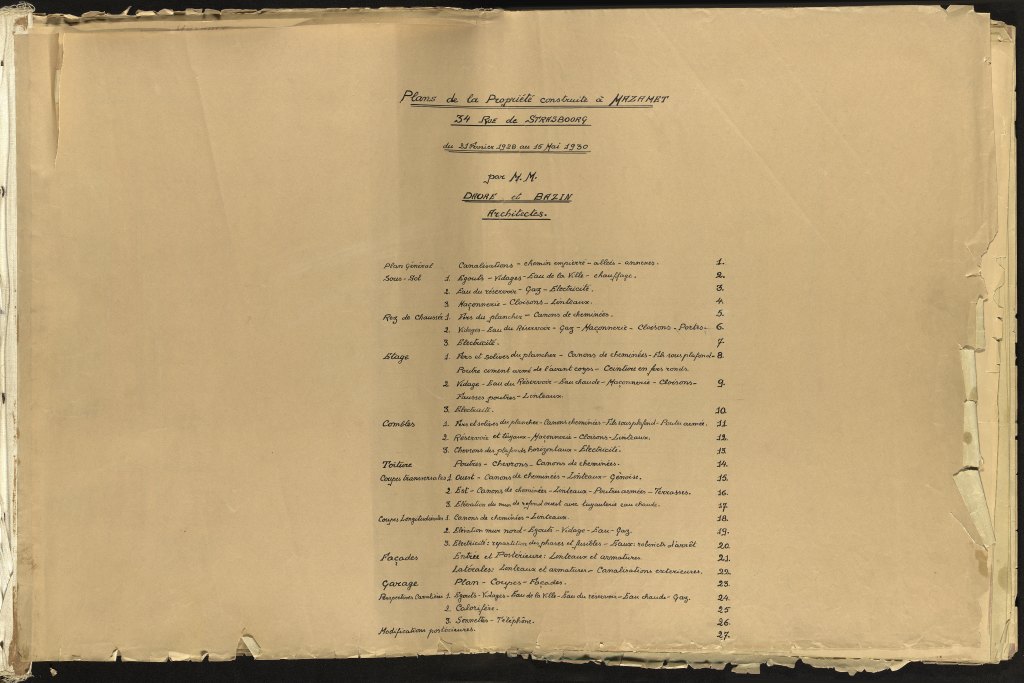 Plans de la Propriété construite à MAZAMET
34 Rue de STRASBOURG
du 21 Février 1928 au 15 Mai 1930
par M.M.
DAURE et BAZIN
Architectes.
Plan Général Canalisations - chemin empierré - allées - annexes. 1.
Sous-Sol 1. Egouts - Vidages - Eau de la Ville - chauffage. 2.
2. Eau du réservoir - Gaz - Electricité. 3.
3. Maçonnerie - Cloisons - Linteaux. 4.
Rez de Chaussée 1. Fers du plancher - Canons de cheminées. 5.
2. Vidages - Eau du Réservoir - Gaz - Maçonnerie - Cloisons - Portes - 6.
3. Electricité. 7.
Etage 1. Fers et solives du plancher - Canons de cheminées - Fils sous plafond - 8.
Poutre ciment armé de l'avant corps - Ceinture en fers ronds.
2. Vidage - Eau du Réservoir - Eau chaude - Maçonnerie - Cloisons - 9.
Fausses poutres - Linteaux.
3. Electricité. 10.
Combles 1. Fers et solives du plancher - Canons cheminées - Fils sous plafond - Poutre armée. 11.
2. Réservoir et tuyaux - Maçonnerie - Cloisons - Linteaux. 12.
3. Chevrons des plafonds horizontaux - Electricité. 13.
Toiture Poutres - Chevrons - Canons de cheminées. 14.
Coupes transversales 1. Ouest - Canons de cheminées - Linteaux - Génoise. 15.
2. Est - Canons de cheminées - Linteaux - Poutres armées - Terrasses. 16.
3. Elévation du mur de refend ouest avec tuyauterie eau chaude. 17.
Coupes Longitudinales 1. Canons de cheminées - Linteaux. 18.
2. Elévation mur nord - Egouts - Vidage - Eau - Gaz. 19.
3. Electricité: répartition des phases et fusibles - Eaux: robinets d'arrêt 20.
Façades Entrée et Postérieure: Linteaux et armatures 21.
Latérales: Linteaux et armatures - Canalisations extérieures. 22.
Garage Plan - Coupes - Façades. 23.
Perspectives Cavalières 1. Egouts - Vidages - Eau de la Ville - Eau du réservoir - Eau chaude - Gaz. 24.
2. Calorifère. 25
3. Sonnettes - Téléphone. 26.
Modifications postérieures. 27.